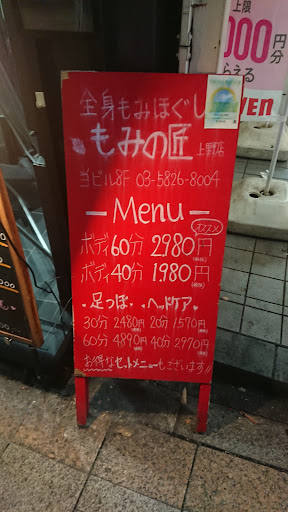 上限
000円分
らえる
VEN
全身もみほぐし
もみの匠 上野店
当ビル8F 03-5826-8004
— Menu —
ボディ60分 2980円
ボディ40分 1980円
・足つぼ・ ・ヘッドケア・
30分 2480円 20分 1570円
60分 4890円 40分 2970円
お得なセットメニューもございます!!